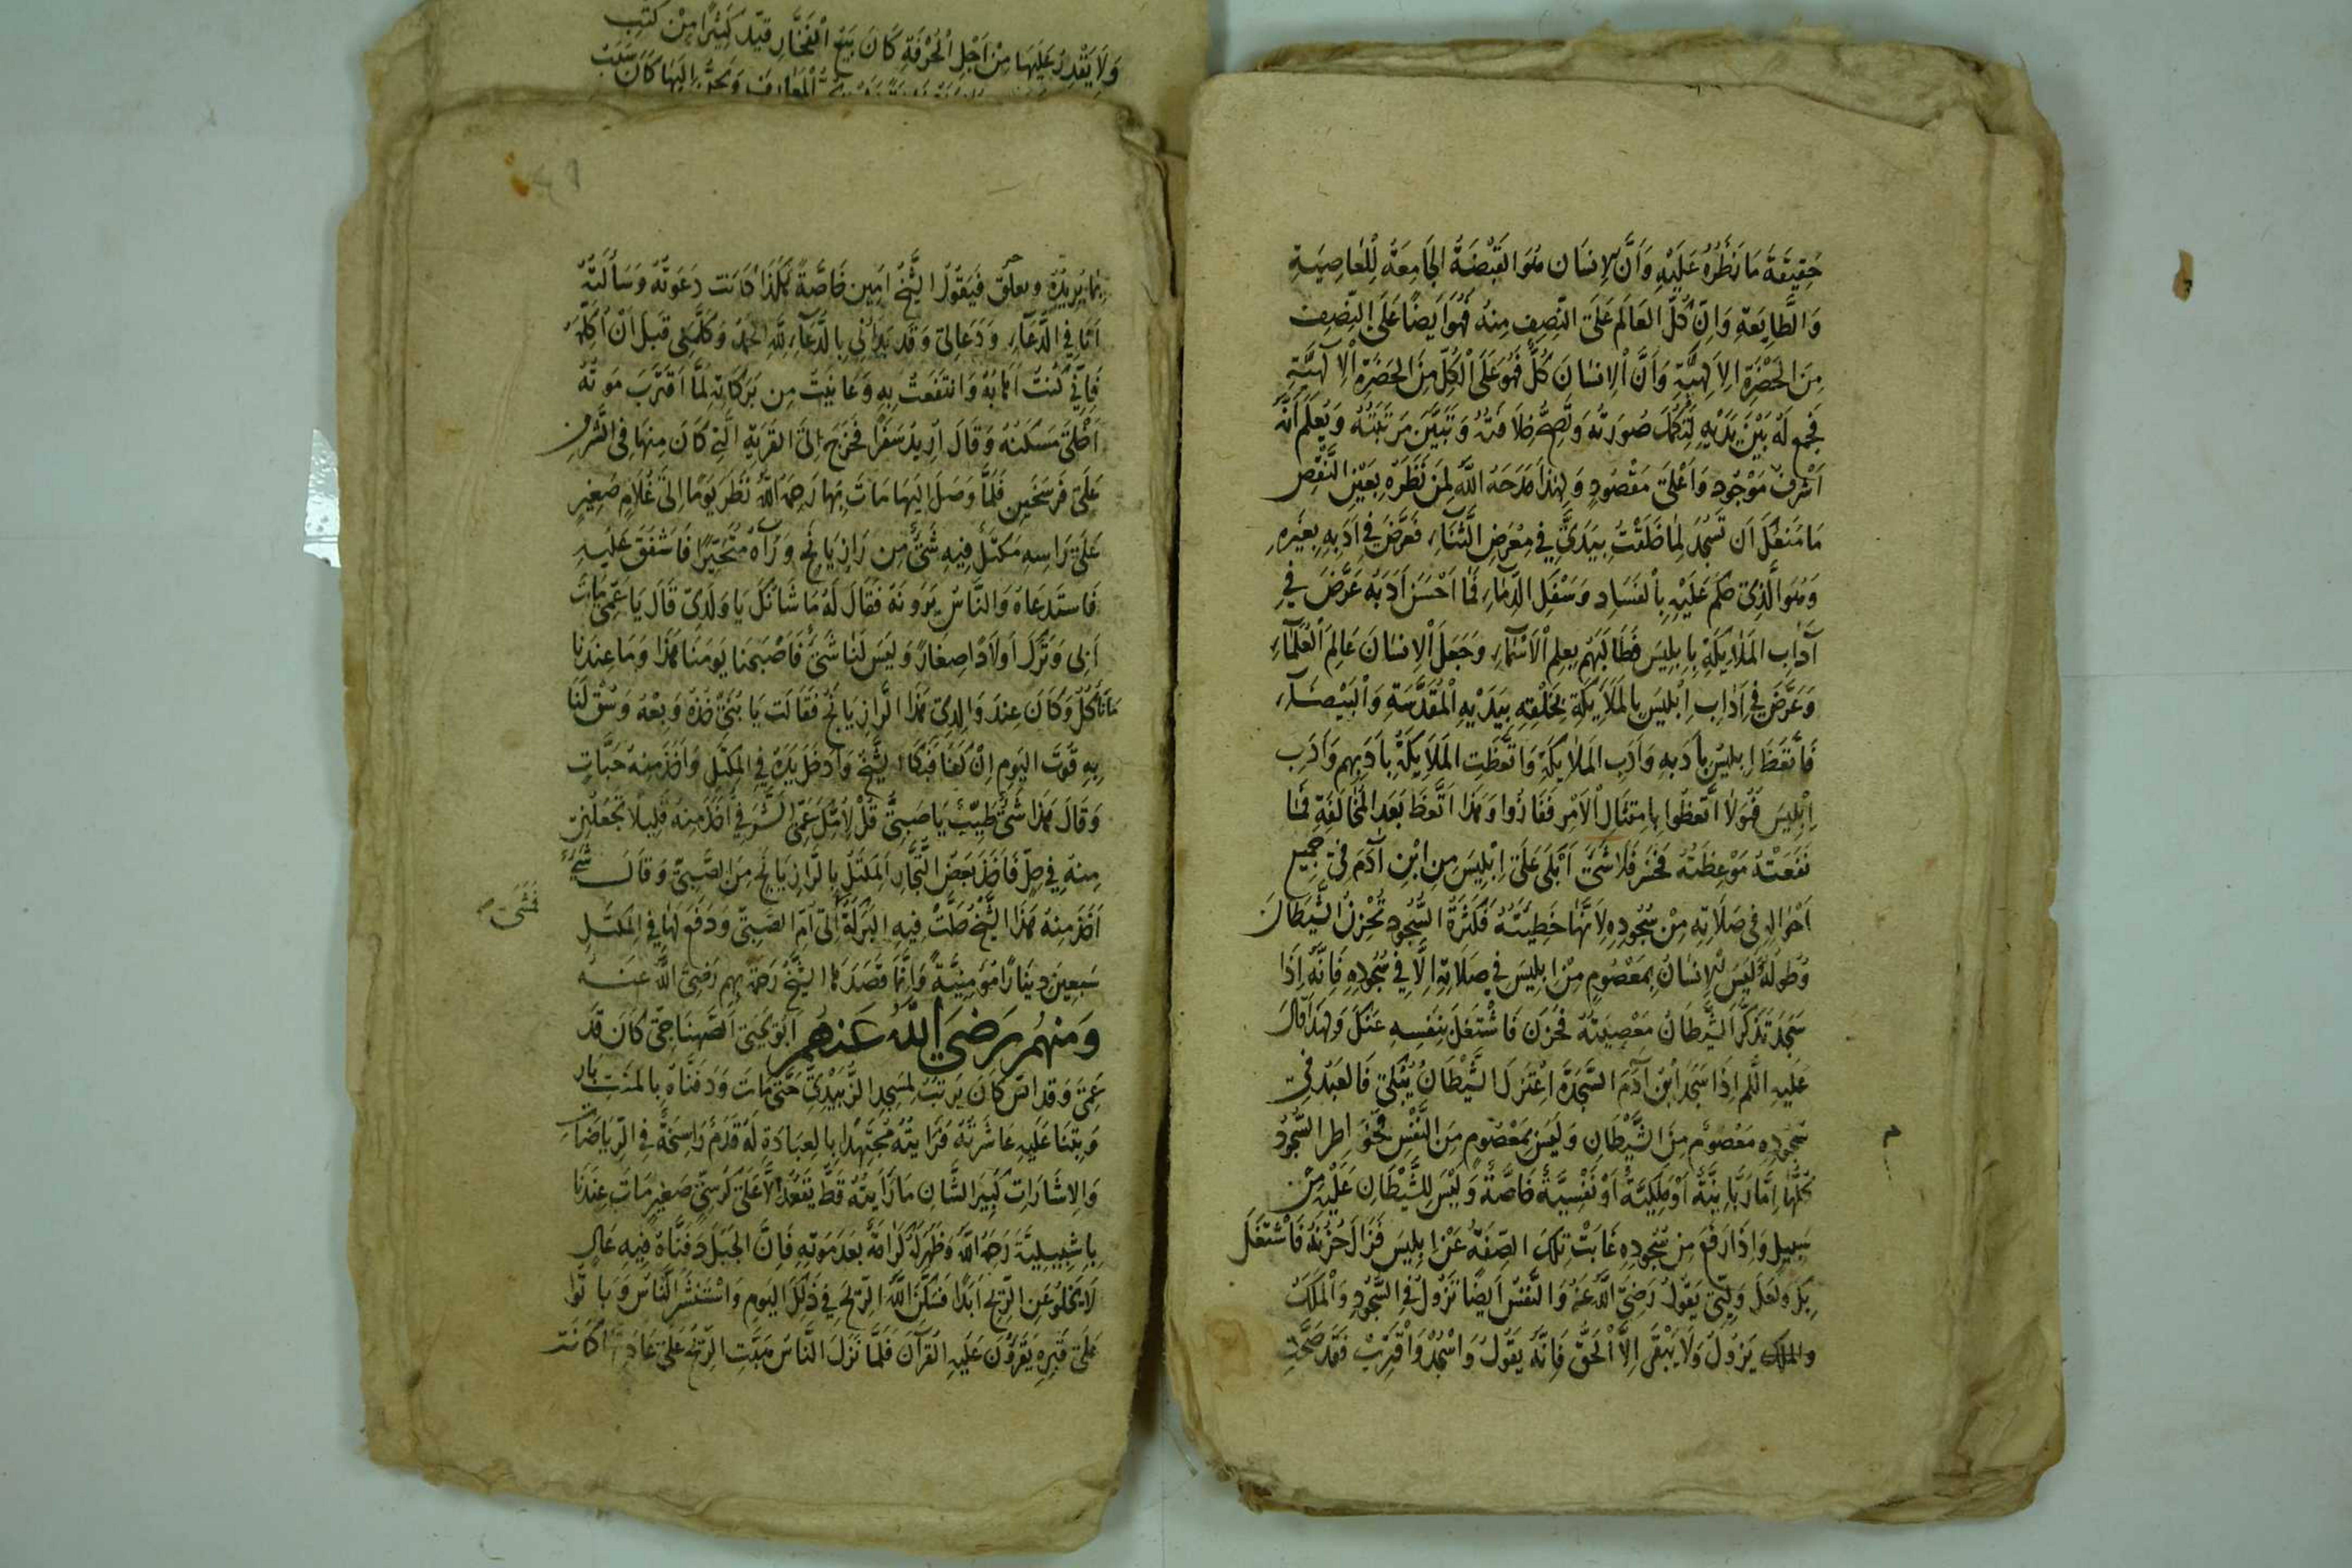 حَقِيقَةَ مَا نَظَرُهُ عَلَيْهِ وَأَنَّ الإِنسَانَ هُوَ القَبْضَةُ الجَامِعَةُ لِلْعَاصِيَةِ
وَالطَّايِعَةِ وَاِنّ كُلَّ العَالَمِ عَلَى النِّصِفِ مِنهُ فَهُوَ اَيضًا عَلَى النِّصِفِ
مِنَ الحَضْرَةِ الاِلٰهِيَّةِ وَأَنَّ الإِنسَانَ كُلٌّ فَهُوَ عَلَى الْكُلِّ مِنَ الحَضْرَةِ الاِلٰهِيَّةِ
فَجَمَعَ لَهُ بَيْنَ يَدَيْهِ لِتَكْمُلَ صُورَتُهُ وَتَصِحَّ خِلَافَتُهُ وَتَتَبَيَّنَ مَرتَبَتُهُ وَيُعْلَمَ اَنَّهُ
اَشْرَفُ مَوْجُودٍ وَاَعْلَى مَقْصُودٍ وَلِهٰذَا مَدَحَهُ اللّٰهُ لِمَن نَظَرَهُ بِعَيْنِ النَّقْصِ
مَا مَنَعَكَ اَن تَسْجُدَ لِمَا خَلَقْتُ بِيَدَيَّ فِي مَعْرَضِ الثَّنَاءِ فَعَرَّضَ فِي اَدَبِهِ بِغَيْرِهِ
وَهُوَ الَّذِي حَكَمَ عَلَيْهِ بِالْفَسَادِ وَسَفْكِ الدِّمَاءِ فَمَا اَحْسَنَ اَدَبَهُ عَرَّضَ فِي
آدَابِ المَلاَيِكَةِ بِاِبلِيسَ فَطَالَبَهُم بِعِلمِ الْاَسْمَاءِ وَجَعَلَ الْاِنسَانَ عَالِمَ الْعُلَمَاءِ
وَعَرَّضَ فِي اٰدَابِ اِبْلِيسَ بِالمَلَايِكَةِ بِخَلْقِهِ بِيَدَيْهِ الْمُقَدَّسَةِ وَالْبَيْضَاءِ
فَاتَّعَظَ اِبلِيسُ بِاَدَبِهِ وَاَدَبِ المَلاَيِكَةِ وَاتَّعَظَتِ المَلَايِكَةُ بِاَدَبِهِم وَاَدَبِ
اِبْلِيسَ فَهٰوُلَا اتَّعَظُوا بِامتِثَالِ الْاَمْرِ فَفَازُوا وَهٰذَا اتَّعَظَ بَعدَ المُخَالَفَةِ فَمَا
نَفَعَتْهُ مَوْعِظَتُهُ فَخَسِرَ فَلَا شَيْءَ اَبْلَى عَلَى اِبْلِيسَ مِنِ ابْنِ آدَمَ فِي جَمِيعِ
اَحْوَالِهِ فِي صَلَاتِهِ مِنْ سُجُودِهِ لِاَنَّهَا خَطِيئَتُهُ فَكَثْرَةُ السُّجُودِ تُحْزِنُ الشَّيطَانَ
وَطُولُهُ وَلَيسَ الاِنسَانُ بِمَعْصُومٍ مِنْ اِبلِيسَ فِي صَلَاتِهِ اِلَّا فِي سُجُودِهِ فَاِنَّهُ اِذَا
سَجَدَ تَذَكَّرَ الشَّيطَانُ مَعْصِيَتَهُ فَحَزِنَ فَاشْتَغَلَ بِنَفسِهِ عَنكَ وَلِهٰذَا قَالَ
عَلَيهِ السَّلَم اِذَا سَجَدَ ابْنُ آدَمَ السَّجْدَةَ اعْتَزَلَ الشَّيْطَانُ يَبْكِي فَالعَبْدُ فِي
سُجُودِهِ مَعْصُومٌ مِنَ الشَّيْطَانِ وَلَيسَ بِمَعْصُومٍ مِنَ النَّفْسِ فَخَوَاطِرُ السُّجُودِ
كُلُّهَا اِمَّا رَبَّانِيَّةٌ اَوْ مَلَكِيَّةٌ اَوْ نَفْسِيَّةٌ خَاصَّةً وَلَيْسَ لِلشَّيْطَانِ عَلَيْهِ مِنْ
سَبِيلٍ وَاِذَا رَفَعَ مِن سُجُودِهِ غَابَتْ تِلكَ الصِّفَةُ عَنْ اِبلِيسَ فَزَالَ حُزْنُهُ فَاشْتَغَلَ
بِكَ وَلَعَلَّ وَلِيِّي يَقُولُ رَضِيَ اللّٰهُ عَنهُ وَالنَّفْسُ اَيضًا تَزُولُ فِي السُّجُودِ وَالْمَلَكُ
والملك يَزُولُ وَلَا يَبْقَى اِلَّا الْحَقُّ فَاِنَّهُ يَقُولُ وَاسْجُدْ وَاقْتَرِبْ فَقَد صَحَّتِ
م
وَلَا يَقْدِرُ عَلَيهَا مِنْ اَجْلِ الْحُرْفَةِ كَانَ يَبِيعُ الْفَخَّارَ قَيَّدَ كَثِيرًا مِنْ كُتُبِ
الْمَعَارِفِ وَيَحِنُّ اِلَيهَا كَانَ سَبَبُ
بِمَا يُرِيدُهُ ويعلق فَيَقُولُ الشَّيْخُ اٰمِين خَاصَّةً هٰكَذَا كَانَت دَعَوتُهُ وَسَاَلتُهُ
اَنَا فِي الدُّعَاءِ وَدَعَا لِي وَقَد بَدَاَنِي بِالدُّعَاءِ لِلّٰهِ الحَمدُ وَكَلَّمَنِي قَبلَ اَنْ اُكَلِّمَهُ
فَاِنِّي كُنتُ اَهَابُهُ وَانتَفَعتُ بِهِ وَعَايَنتُ مِن بَرَكَاتِهِ لَمَّا اَقتَرَبَ مَوتُهُ
اَخْلَى مَسكَنَهُ وَقَالَ اُرِيدُ سَفَرًا فَخَرَجَ اِلَى القَريَةِ الَّتِي كَانَ مِنهَا فِي الشَّرَفِ
عَلَى فَرسَخَينِ فَلَمَّا وَصَلَ اِلَيهَا مَاتَ بِهَا رَحِمَهُ اللّٰهُ نَظَرَ يَومًا اِلَى غُلَامٍ صَغِيرٍ
عَلَى رَاسِهِ مَكتَلٌ فِيهِ شَيْءٌ مِن رَازِيَانَجٍ وَرَآهُ مُتَحَيِّرًا فَاَشْفَقَ عَلَيهِ
فَاستَدعَاهُ وَالنَّاسُ يَرَونَهُ فَقَالَ لَهُ مَا شَانُكَ يَا وَلَدِي قَالَ يَا عَمِّي مَاتَ
اَبِي وَتَرَكَ اَولَادًا صِغَارًا وَلَيسَ لَنَا شَيْءٌ فَاَصْبَحنَا يَومَنَا هٰذَا وَمَا عِندَنَا
مَا نَاكُلُ وَكَانَ عِندَ وَالِدَتِي هٰذَا الرَّازِيَانَجُ فَقَالَت يَا بُنَيَّ خُذهُ وَبِعْهُ وَسُقْ لَنَا
بِهِ قُوتَ اليَومِ اِنْ كَفَانَا فَبَكَا الشَّيْخُ وَاَدخَلَ يَدَهُ فِي المَكتَلِ وَاَخَذَ مِنهُ حَبَّاتٍ
وَقَالَ هٰذَا شَيْءٌ طَيِّبٌ يَا صَبِيُّ قُلْ لِاُمِّكَ عَمِّي الشَّرَفِيُّ اَخَذَ مِنهُ قَلِيلًا تَجْعَلِينِي
مِنهُ فِي حِلٍّ فَاَخَذَ بَعضُ التُّجَّارِ المَكتَلَ بِالرَّازِيَانَجِ مِنَ الصَّبِيِّ وَقَالَ شَيْءٌ
اَخَذَ مِنهُ هٰذَا الشَّيْخُ حَلَّتْ فِيهِ البَرَكَةُ اِلَى اُمِّ الصَّبِيِّ وَدَفَعَ لَهَا فِي المَكتَلِ
فَمَشَى
سَبعِينَ دِينَارًا مُؤمِنِيَّةً وَاِنَّمَا قَصَدَ هَا الشَّيْخُ رَحمَةً بِهِم رَضِيَ اللّٰهُ عَنهُ
وَمِنهُم رَضِيَ اللّٰهُ عَنهُم اَبُو يَحيَى الصَّنهَاجِي كَانَ قَد
عَمِيَ وَقد اسَّ كَانَ يَرتَبُ لِمَسجِدِ الزُّبَيْدِيِّ حَتَّى مَاتَ وَدَفَنَّاهُ بِالمنتبار
وَبِتْنَا عَلَيهِ عَاشَرتُهُ فَرَاَيتُهُ مُجتَهِدًا بِالعِبَادَةِ لَهُ قَدَمٌ رَاسِخَةٌ فِي الرِّيَاضَاتِ
وَالاِشَارَاتِ كَبِيرَ الشَّانِ مَا رَاَيتُهُ قَطُّ يَقعُدُ اِلَّا عَلَى كُرسِيٍّ صَغِيرٍ مَاتَ عِندَنَا
بِاِشبِيلِيَّةَ رَحِمَهُ اللّٰهُ وَظَهَرَ لَهُ كَرَامَةٌ بَعدَ مَوتِهِ فَاِنَّ الجَبَلَ دَفَنَّاهُ فِيهِ عَالٍ
لَا يَخلُو عَنِ الرِّيحِ اَبَدًا فَسَكَّنَ اللّٰهُ الرِّيحَ فِي ذٰلِكَ اليَومِ وَاسْتَبْشَرَ النَّاسُ وَبَاتُوا
عَلَى قَبرِهِ يَقرَؤُنَ عَلَيهِ القُرآنَ فَلَمَّا نَزَلَ النَّاسُ هَبَّتِ الرِّيحُ عَلَى عَادَتِهَا كَانَت